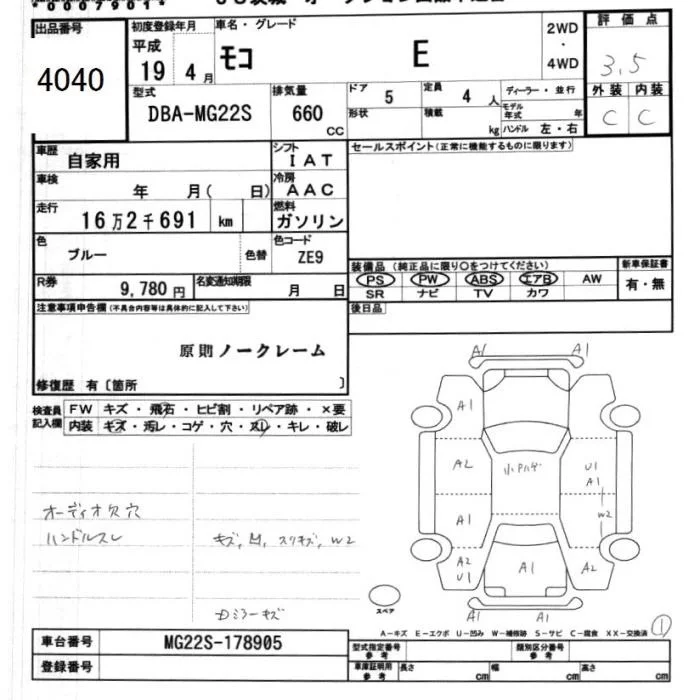 出品番号
4040
初度登録年月
平成
19 4月
車名・グレード
モコ E
2WD
・
4WD
評価点
3,5
外装 内装
C C
型式
DBA-MG22S
排気量
660
CC
ドア
5
定員
4 人
形状
積載
kg
ディーラー・並行
モデル年式 年
ハンドル 左・右
車歴
自家用
シフト
IAT
車検
年 月( 日)
冷房
AAC
走行
16万2千691 km
燃料
ガソリン
色
ブルー
色替
色コード
ZE9
R券
9,780円
名変通知期限
月 日
セールスポイント(正常に機能するものに限ります)
装備品(純正品に限り○をつけてください)
PS PW ABS エアB AW
SR ナビ TV カワ
新車保証書
有・無
後日品
注意事項申告欄(不具合内容等は具体的に記入して下さい)
原則ノークレーム
修復歴 有〔箇所 〕
検査員記入欄
FW キズ・飛石・ヒビ割・リペア跡・×要
内装 キズ・汚レ・コゲ・穴・スレ・キレ・破レ
オーディオ欠穴
ハンドルスレ
キズ, 凹, スリキズ, W2
Dミラーキズ
A1 A1
A1
A2
U1
A1
A1
W2
A2
U1
A1
A2
A1 A1
スペア
A-キズ E-エクボ U-凹み W-補修跡 S-サビ C-腐食 XX-交換済
1
車台番号
MG22S-178905
登録番号
型式指定番号
参考
類別区分番号
参考
車庫証明用
参考
長さ cm 幅 cm 高さ cm